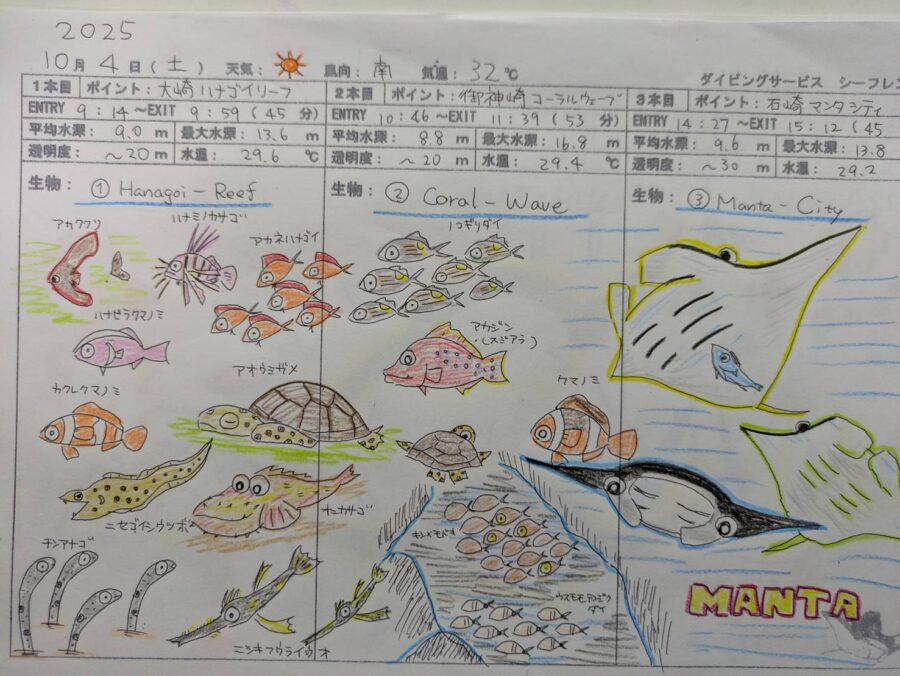 2025
10月 4 日 (土) 天気: 風向: 南 気温: 32℃
ダイビングサービス シーフレン
1本目 ポイント: 大崎 ハナゴイリーフ
ENTRY 9:14 ~EXIT 9:59 (45 分)
平均水深: 9.0 m 最大水深: 13.6 m
透明度: ~20 m 水温: 29.6 ℃
生物: ① Hanagoi-Reef
アカククリ
ハナミノカサゴ
アカネハナゴイ
ハナビラクマノミ
カクレクマノミ
アオウミガメ
ニセゴイシウツボ
オニカサゴ
チンアナゴ
ニシキフウライウオ
2本目 ポイント: 御神崎 コーラルウェーブ
ENTRY 10:46 ~EXIT 11:39 (53 分)
平均水深: 8.8 m 最大水深: 16.8 m
透明度: ~20 m 水温: 29.4 ℃
生物: ② Coral-Wave
ノコギリダイ
アカジン
(スジアラ)
クマノミ
キンメモドキ
ウスモモテンジク
ダイ
3本目 ポイント: 石崎 マンタシティ
ENTRY 14:27 ~EXIT 15:12 (45
平均水深: 9.6 m 最大水深: 13.8
透明度: ~30 m 水温: 29.2
生物: ③ Manta-City
MANTA